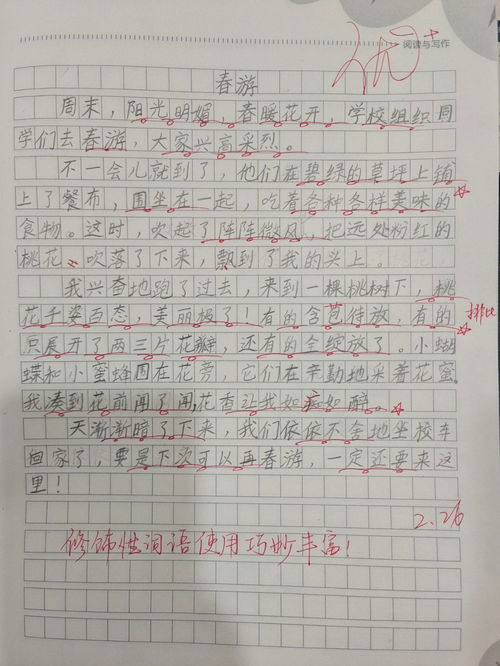 阅读与写作
优+
春游
周末，阳光明媚，春暖花开，学校组织同
学们去春游，大家兴高采烈。
不一会儿就到了，他们在碧绿的草坪上铺
上了餐布，围坐在一起，吃着各种各样美味的
食物。这时，吹起了阵阵微风，把远处粉红的
桃花吹落了下来，飘到了我的头上。
我兴奋地跑了过去，来到一棵桃树下，桃
花千姿百态，美丽极了！有的含苞待放，有的
只展开了两三片花瓣，还有的全绽放了。小蝴
排比
蝶和小蜜蜂围在花旁，它们在辛勤地采着花蜜。
我凑到花前闻了闻，花香让我如痴如醉。
天渐渐暗了下来，我们依依不舍地坐校车
回家了，要是下次可以再春游，一定还要来这
里！
2.26
修饰性词语使用巧妙丰富！